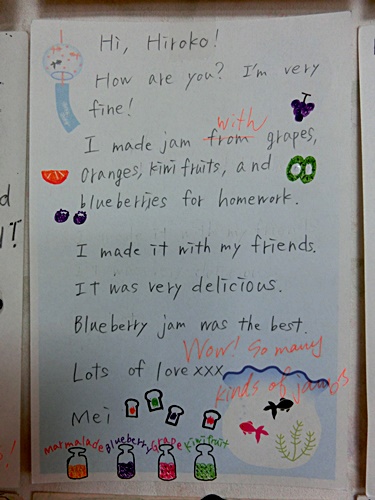 Hi, Hiroko!
How are you? I'm very
fine!
with
I made jam from grapes,
oranges, kiwi fruits, and
blueberries for homework.
I made it with my friends.
It was very delicious.
Blueberry jam was the best.
Wow! So many
Lots of love xxx
kinds of jams
Mei
marmalade Blueberry Grape Kiwifruit